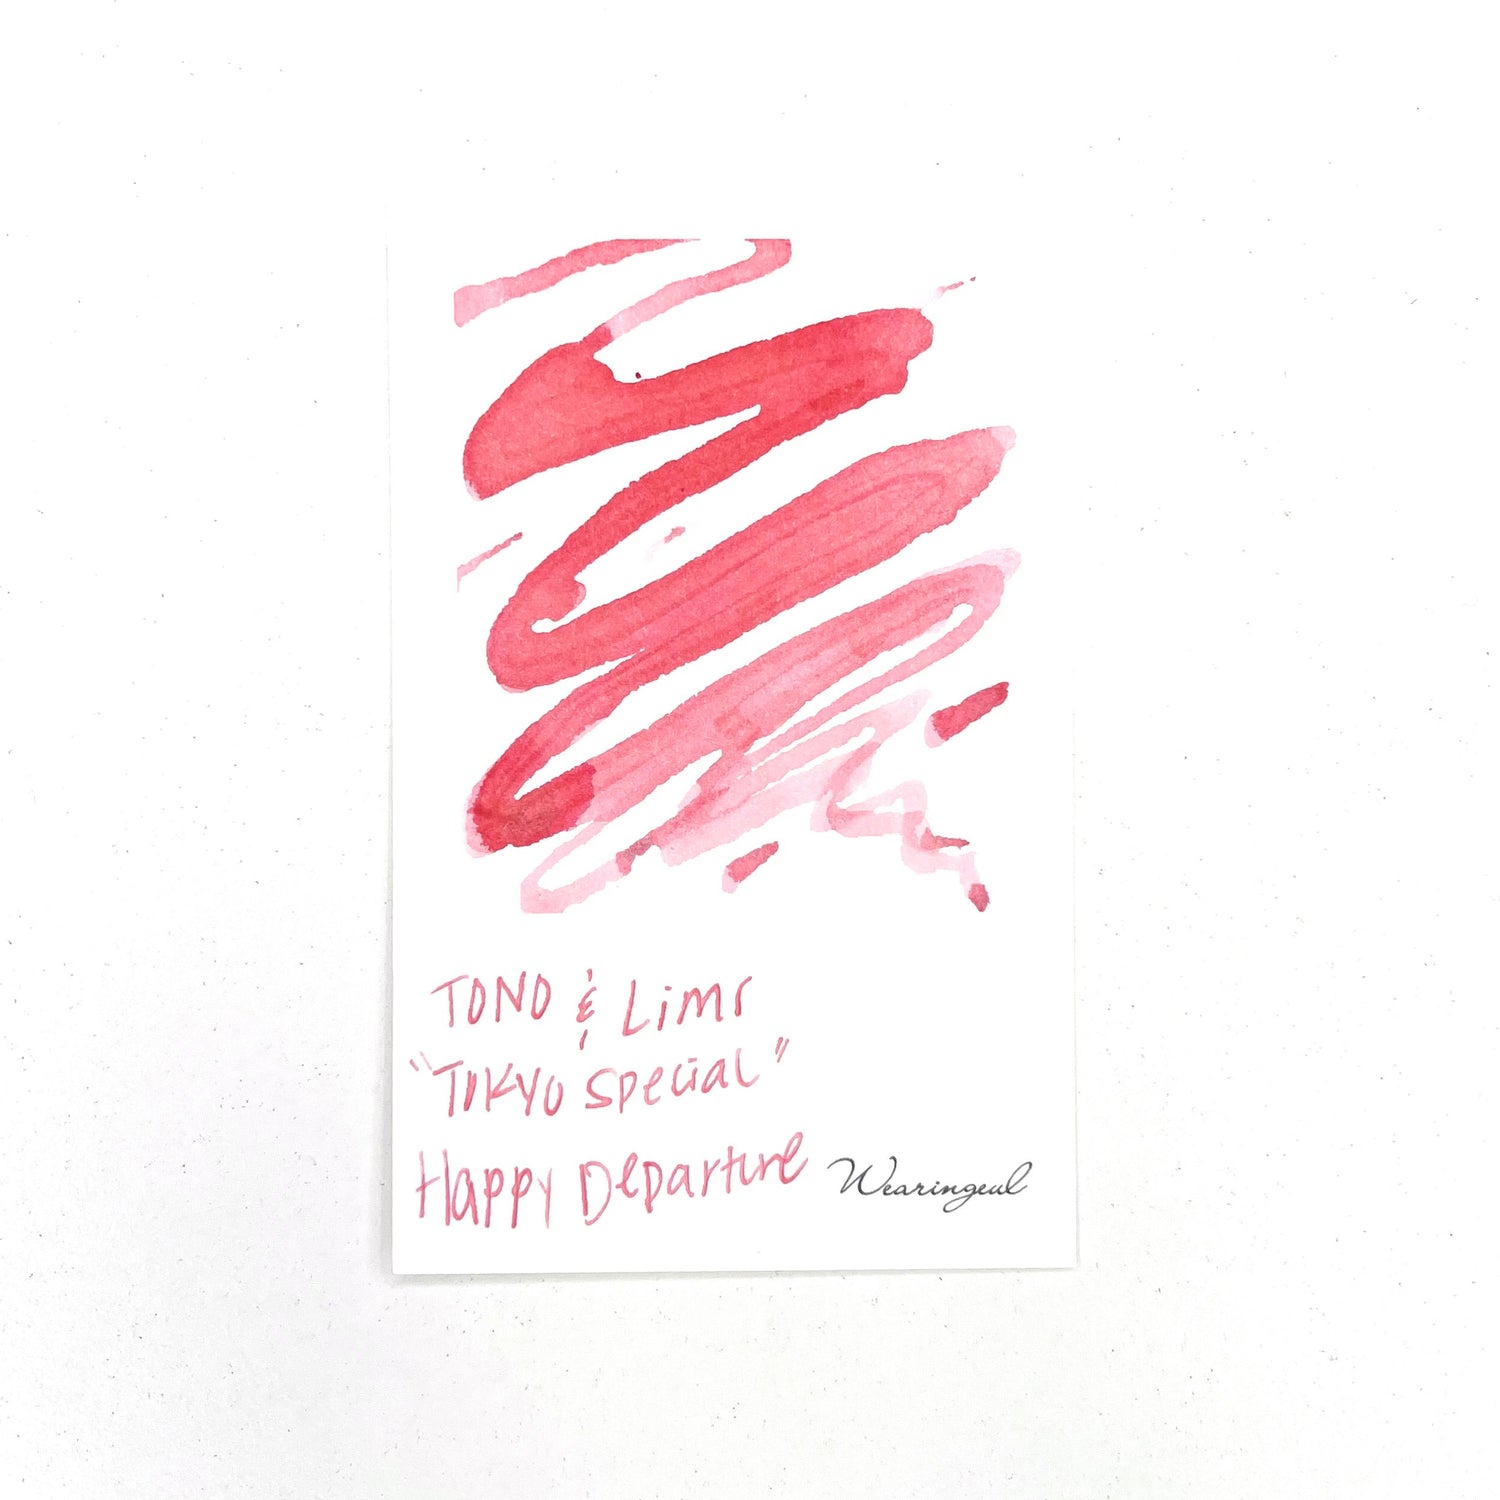 TONO & Lims
"TOKYO Special"
Happy Departure
Wearingeul